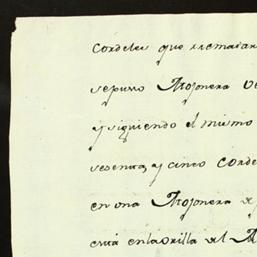 Cordeles que remataron
se puso Mojonera
y siguiendo el mismo
sesenta, y cinco Corde
en una Mojonera
está en la orilla del